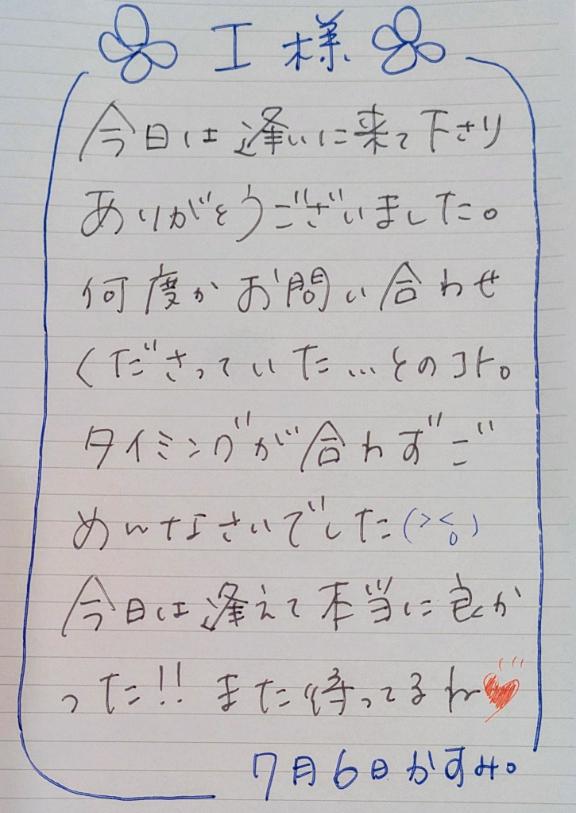 I様
今日は逢いに来て下さり
ありがとうございました。
何度かお問い合わせ
くださっていた…とのコト。
タイミングが合わずご
めんなさいでした(><。)
今日は逢えて本当に良か
った!!また待ってるね
7月6日かすみ。